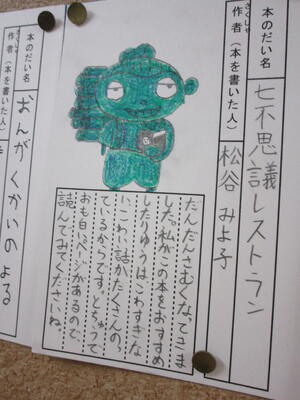 本のだい名
七不思議レストラン
さくしゃ
作者（本を書いた人）
松谷みよ子
だんだんさむくなってきま
した。私がこの本をおすすめ
したりゆうはこわすぎな
い、こわい話がたくさんのっ
ているからです。とちゅうで
おも白いページがあるので、
読んでみてくださいね。
本のだい名
おんがくかいのよる
さくしゃ
作者（本を書いた人）